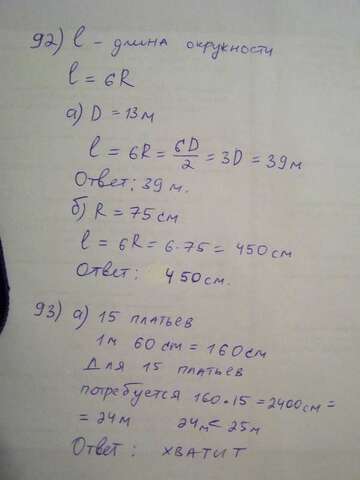 92) l – длина окружности
l = 6R
а) D = 13м
l = 6R = 6D/2 = 3D = 39м
Ответ: 39 м.
б) R = 75 см
l = 6R = 6·75 = 450 см
Ответ: 450 см.
93) а) 15 платьев
1м 60 см = 160 см
Для 15 платьев
потребуется 160·15 = 2400 см =
= 24м 24м < 25м
Ответ: хватит